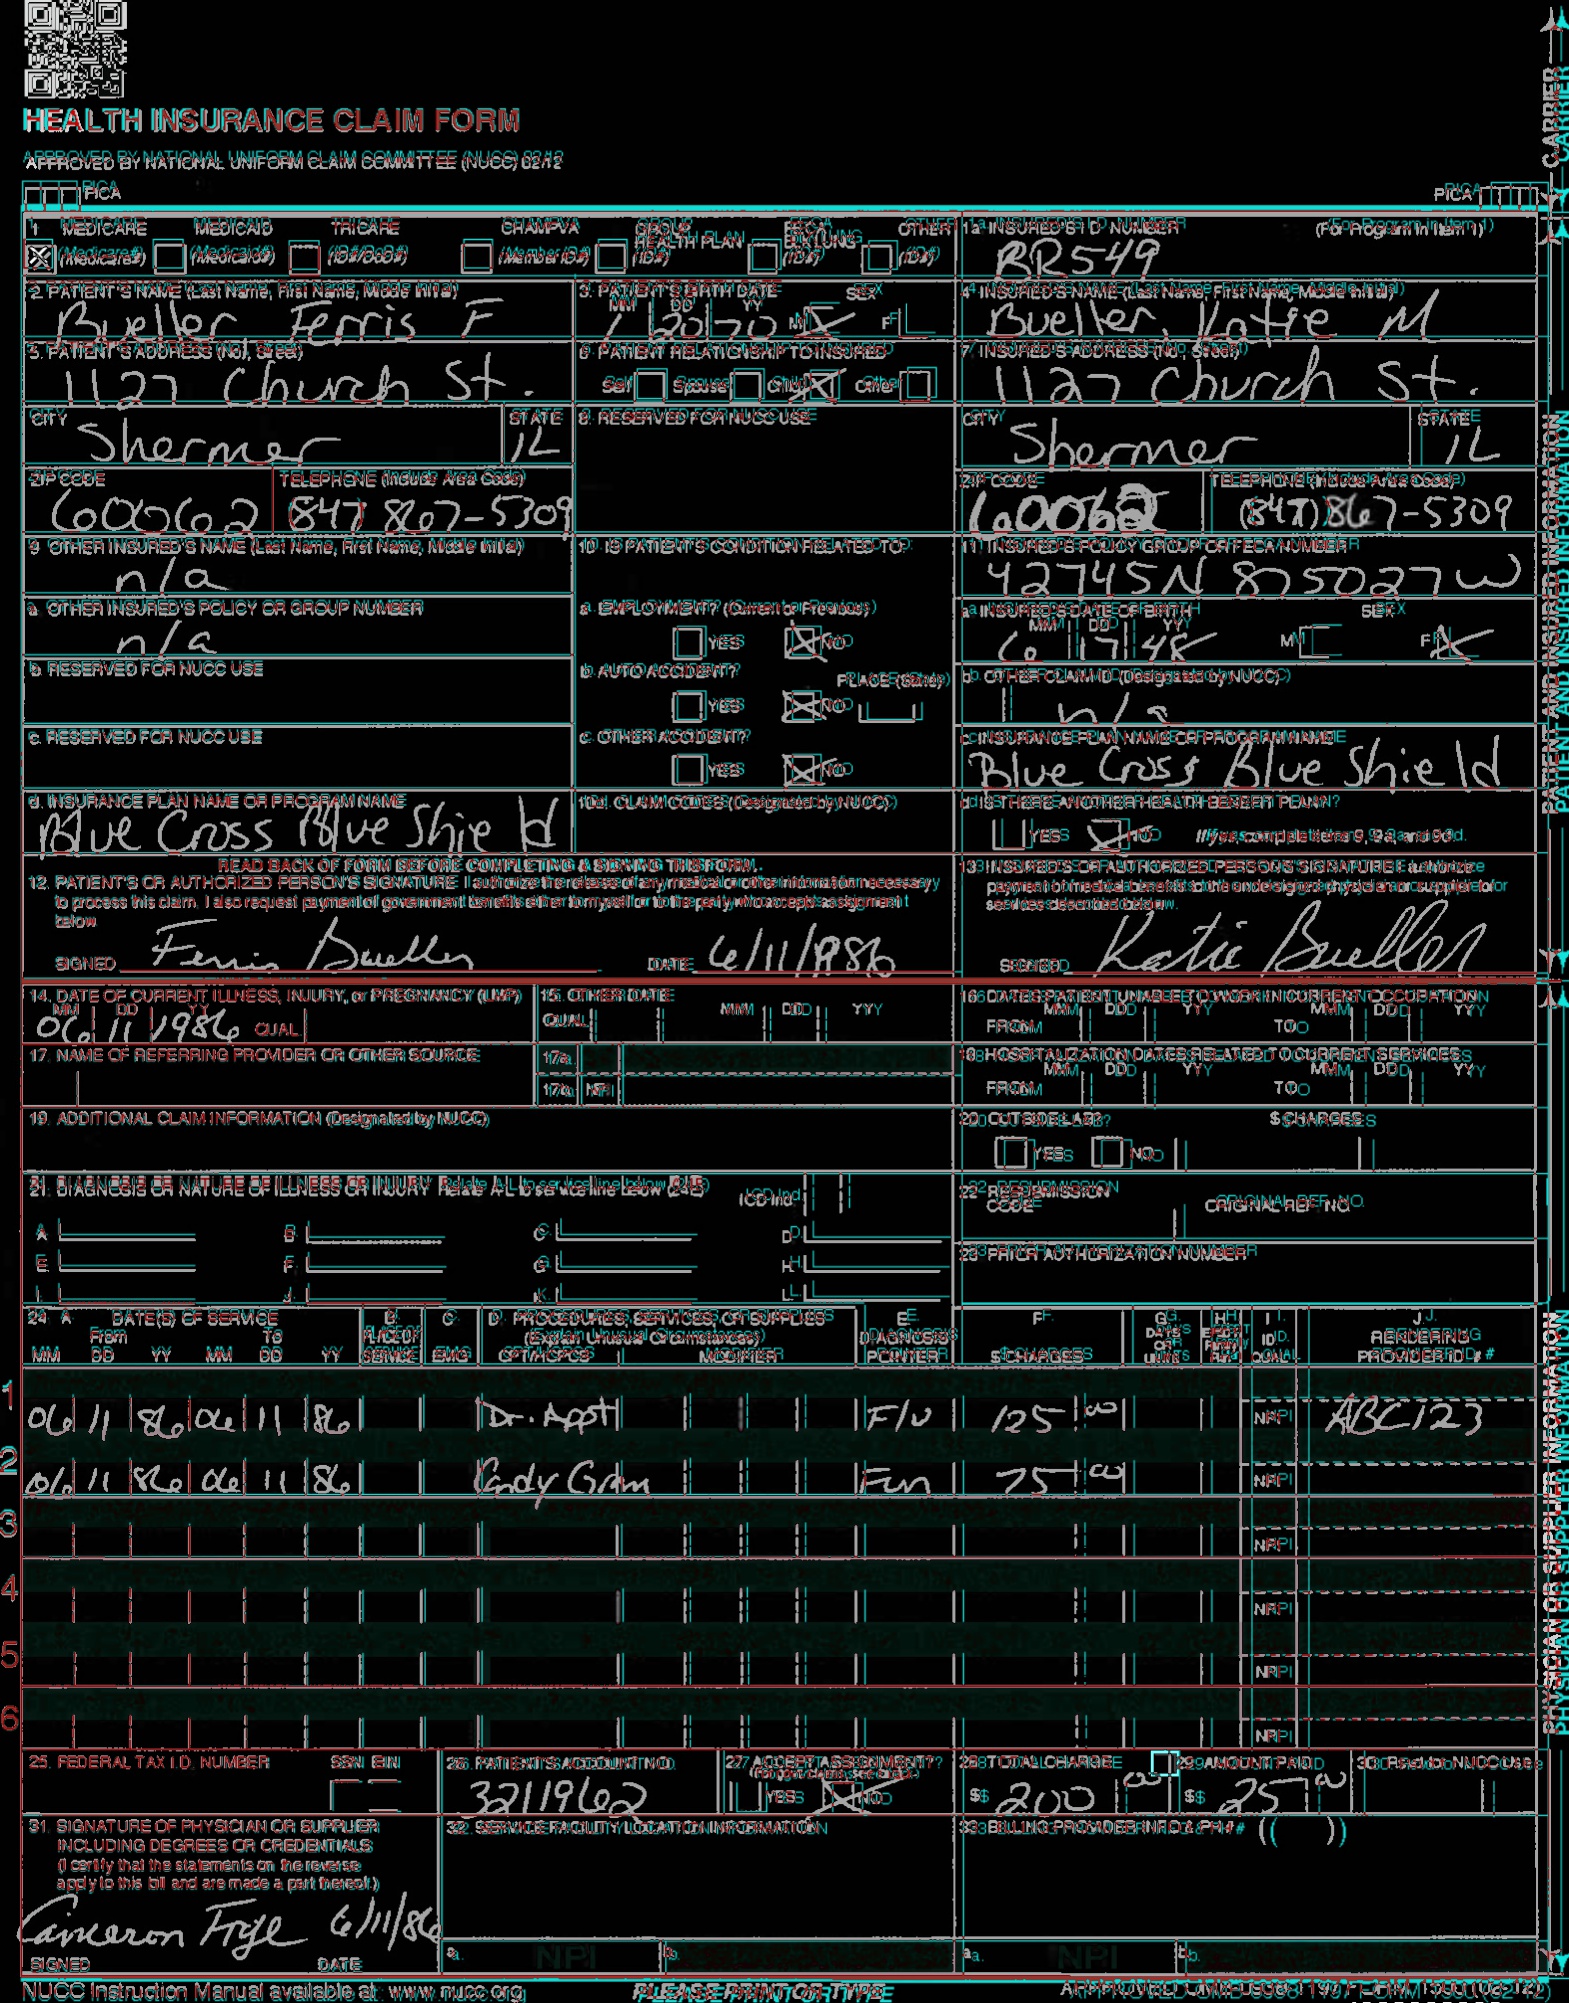 HEALTH INSURANCE CLAIM FORM
APPROVED BY NATIONAL UNIFORM CLAIM COMMITTEE (NUCC) 02/12
PICA PICA
CARRIER
1. MEDICARE MEDICAID TRICARE CHAMPVA GROUP HEALTH PLAN FECA BLK LUNG OTHER
(Medicare#) (Medicaid#) (ID#/DoD#) (Member ID#) (ID#) (ID#) (ID#)
1a. INSURED'S I.D. NUMBER (For Program in Item 1)
RR549
2. PATIENT'S NAME (Last Name, First Name, Middle Initial)
Bueller Ferris F
3. PATIENT'S BIRTH DATE SEX
MM DD YY
1 20 70 M F
4. INSURED'S NAME (Last Name, First Name, Middle Initial)
Bueller, Katie M
5. PATIENT'S ADDRESS (No., Street)
1127 Church St.
6. PATIENT RELATIONSHIP TO INSURED
Self Spouse Child Other
7. INSURED'S ADDRESS (No., Street)
1127 Church St.
CITY STATE
Shermer IL
8. RESERVED FOR NUCC USE
CITY STATE
Shermer IL
ZIP CODE TELEPHONE (Include Area Code)
60062 (847) 867-5309
ZIP CODE TELEPHONE (Include Area Code)
60062 (847) 867-5309
9. OTHER INSURED'S NAME (Last Name, First Name, Middle Initial)
n/a
10. IS PATIENT'S CONDITION RELATED TO:
11. INSURED'S POLICY GROUP OR FECA NUMBER
42745N 875027W
a. OTHER INSURED'S POLICY OR GROUP NUMBER
n/a
a. EMPLOYMENT? (Current or Previous)
YES NO
a. INSURED'S DATE OF BIRTH SEX
MM DD YY
6 17 48 M F
b. RESERVED FOR NUCC USE
b. AUTO ACCIDENT? PLACE (State)
YES NO
b. OTHER CLAIM ID (Designated by NUCC)
n/a
c. RESERVED FOR NUCC USE
c. OTHER ACCIDENT?
YES NO
c. INSURANCE PLAN NAME OR PROGRAM NAME
Blue Cross Blue Shield
d. INSURANCE PLAN NAME OR PROGRAM NAME
Blue Cross Blue Shield
10d. CLAIM CODES (Designated by NUCC)
d. IS THERE ANOTHER HEALTH BENEFIT PLAN?
YES NO If yes, complete items 9, 9a, and 9d.
READ BACK OF FORM BEFORE COMPLETING & SIGNING THIS FORM.
12. PATIENT'S OR AUTHORIZED PERSON'S SIGNATURE I authorize the release of any medical or other information necessary
to process this claim. I also request payment of government benefits either to myself or to the party who accepts assignment
below.
SIGNED Ferris Bueller DATE 6/11/1986
13. INSURED'S OR AUTHORIZED PERSON'S SIGNATURE I authorize
payment of medical benefits to the undersigned physician or supplier for
services described below.
SIGNED Katie Bueller
PATIENT AND INSURED INFORMATION
14. DATE OF CURRENT ILLNESS, INJURY, or PREGNANCY (LMP)
MM DD YY
06 11 1986 QUAL.
15. OTHER DATE
QUAL. MM DD YY
16. DATES PATIENT UNABLE TO WORK IN CURRENT OCCUPATION
MM DD YY MM DD YY
FROM TO
17. NAME OF REFERRING PROVIDER OR OTHER SOURCE
17a.
17b. NPI
18. HOSPITALIZATION DATES RELATED TO CURRENT SERVICES
MM DD YY MM DD YY
FROM TO
19. ADDITIONAL CLAIM INFORMATION (Designated by NUCC)
20. OUTSIDE LAB? $ CHARGES
YES NO
21. DIAGNOSIS OR NATURE OF ILLNESS OR INJURY Relate A-L to service line below (24E) ICD Ind.
A. B. C. D.
E. F. G. H.
I. J. K. L.
22. RESUBMISSION CODE ORIGINAL REF. NO.
23. PRIOR AUTHORIZATION NUMBER
24. A. DATE(S) OF SERVICE B. C. D. PROCEDURES, SERVICES, OR SUPPLIES E. F. G. H. I. J.
From To PLACE OF (Explain Unusual Circumstances) DIAGNOSIS DAYS OR EPSDT Family ID. RENDERING
MM DD YY MM DD YY SERVICE EMG CPT/HCPCS MODIFIER POINTER $ CHARGES UNITS Plan QUAL. PROVIDER ID. #
1 06 11 86 06 11 86 Dr. Appt F/U 125 00 NPI ABC123
2 06 11 86 06 11 86 Candy Gram Fun 75 00 NPI
3 NPI
4 NPI
5 NPI
6 NPI
PHYSICIAN OR SUPPLIER INFORMATION
25. FEDERAL TAX I.D. NUMBER SSN EIN
26. PATIENT'S ACCOUNT NO.
3211962
27. ACCEPT ASSIGNMENT?
(For govt. claims, see back)
YES NO
28. TOTAL CHARGE
$ 200 00
29. AMOUNT PAID
$ 25 00
30. Rsvd for NUCC Use
31. SIGNATURE OF PHYSICIAN OR SUPPLIER
INCLUDING DEGREES OR CREDENTIALS
(I certify that the statements on the reverse
apply to this bill and are made a part thereof.)
Cameron Frye 6/11/86
SIGNED DATE
32. SERVICE FACILITY LOCATION INFORMATION
a. NPI b.
33. BILLING PROVIDER INFO & PH # ( )
a. NPI b.
NUCC Instruction Manual available at: www.nucc.org
PLEASE PRINT OR TYPE
APPROVED OMB-0938-1197 FORM 1500 (02-12)